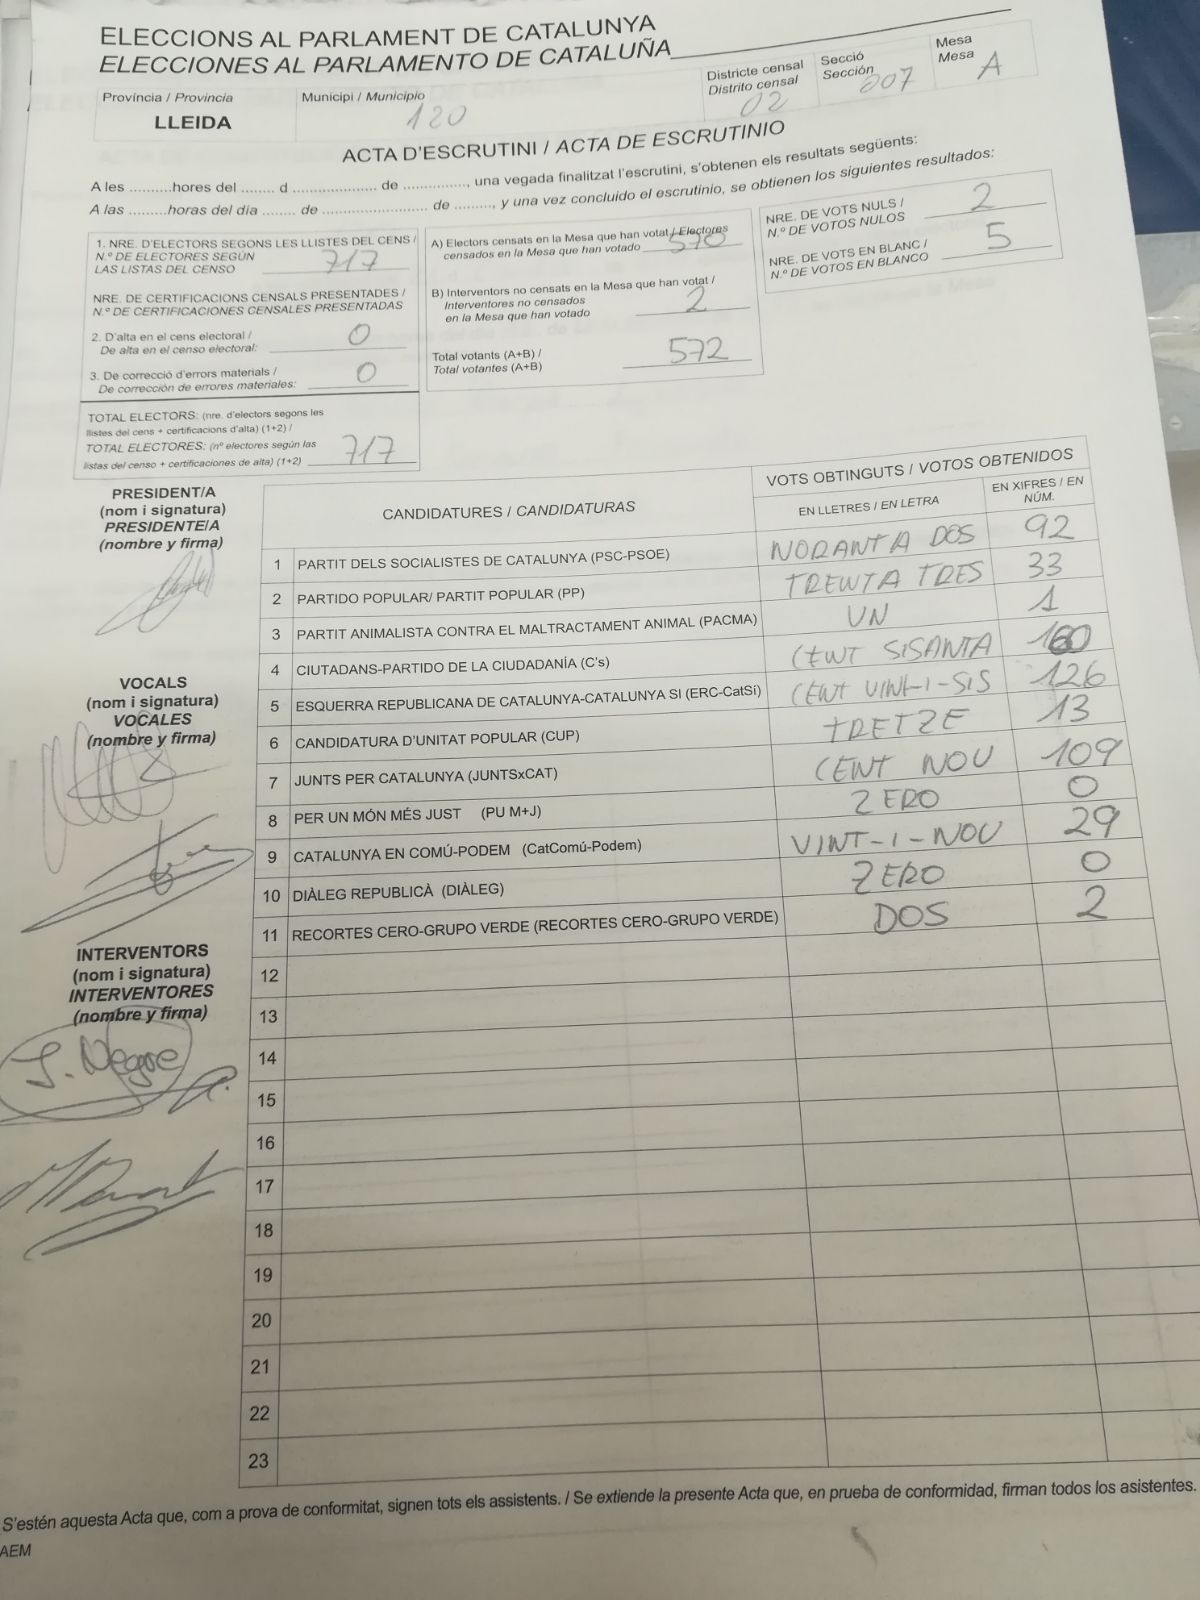 ELECCIONS AL PARLAMENT DE CATALUNYA
ELECCIONES AL PARLAMENTO DE CATALUÑA
Província / Provincia
LLEIDA
Municipi / Municipio
120
Districte censal
Distrito censal
02
Secció
Sección
007
Mesa
Mesa
A
ACTA D'ESCRUTINI / ACTA DE ESCRUTINIO
A les ..........hores del ........ d .................... de ..............., una vegada finalitzat l'escrutini, s'obtenen els resultats següents:
A las .........horas del día ........ de ......................... de ........., y una vez concluido el escrutinio, se obtienen los siguientes resultados:
1. NRE. D'ELECTORS SEGONS LES LLISTES DEL CENS /
N.º DE ELECTORES SEGÚN
LAS LISTAS DEL CENSO 717
NRE. DE CERTIFICACIONS CENSALS PRESENTADES /
N.º DE CERTIFICACIONES CENSALES PRESENTADAS
2. D'alta en el cens electoral /
De alta en el censo electoral: 0
3. De correcció d'errors materials /
De corrección de errores materiales: 0
TOTAL ELECTORS: (nre. d'electors segons les
llistes del cens + certificacions d'alta) (1+2) /
TOTAL ELECTORES: (nº electores según las
listas del censo + certificaciones de alta) (1+2) 717
A) Electors censats en la Mesa que han votat / Electores
censados en la Mesa que han votado 570
B) Interventors no censats en la Mesa que han votat /
Interventores no censados
en la Mesa que han votado 2
Total votants (A+B) /
Total votantes (A+B) 572
NRE. DE VOTS NULS /
N.º DE VOTOS NULOS 2
NRE. DE VOTS EN BLANC /
N.º DE VOTOS EN BLANCO 5
PRESIDENT/A
(nom i signatura)
PRESIDENTE/A
(nombre y firma)
VOCALS
(nom i signatura)
VOCALES
(nombre y firma)
INTERVENTORS
(nom i signatura)
INTERVENTORES
(nombre y firma)
J. Negre
CANDIDATURES / CANDIDATURAS
VOTS OBTINGUTS / VOTOS OBTENIDOS
EN LLETRES / EN LETRA
EN XIFRES / EN
NÚM.
1 PARTIT DELS SOCIALISTES DE CATALUNYA (PSC-PSOE) NORANTA DOS 92
2 PARTIDO POPULAR/ PARTIT POPULAR (PP) TRENTA TRES 33
3 PARTIT ANIMALISTA CONTRA EL MALTRACTAMENT ANIMAL (PACMA) UN 1
4 CIUTADANS-PARTIDO DE LA CIUDADANÍA (C's) CENT SISANTA 160
5 ESQUERRA REPUBLICANA DE CATALUNYA-CATALUNYA SI (ERC-CatSí) CENT VINT-I-SIS 126
6 CANDIDATURA D'UNITAT POPULAR (CUP) TRETZE 13
7 JUNTS PER CATALUNYA (JUNTSxCAT) CENT NOU 109
8 PER UN MÓN MÉS JUST (PU M+J) ZERO 0
9 CATALUNYA EN COMÚ-PODEM (CatComú-Podem) VINT-I-NOU 29
10 DIÀLEG REPUBLICÀ (DIÀLEG) ZERO 0
11 RECORTES CERO-GRUPO VERDE (RECORTES CERO-GRUPO VERDE) DOS 2
12
13
14
15
16
17
18
19
20
21
22
23
S'estén aquesta Acta que, com a prova de conformitat, signen tots els assistents. / Se extiende la presente Acta que, en prueba de conformidad, firman todos los asistentes.
AEM